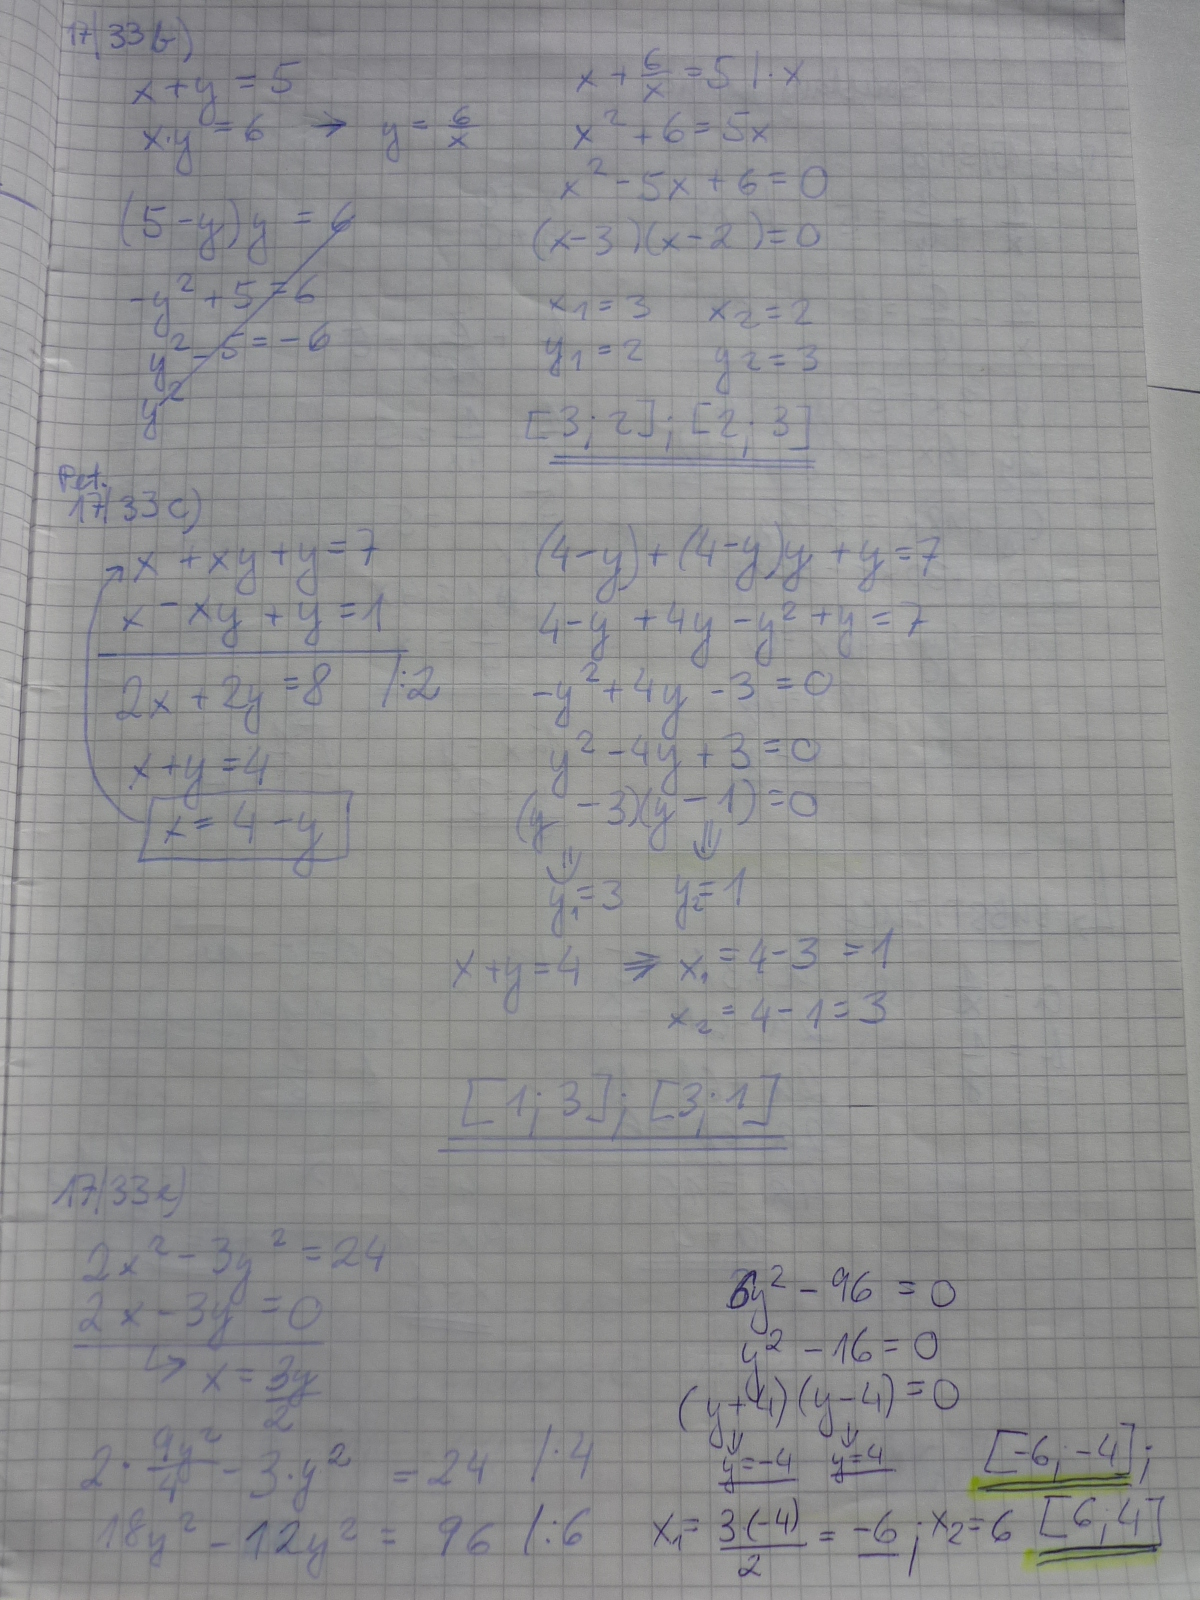 17/33b)
x+y=5
x·y=6 → y=6/x
(5-y)y=6
-y²+5=6
y²-5=-6
y²
x+6/x=5 |·x
x²+6=5x
x²-5x+6=0
(x-3)(x-2)=0
x₁=3 x₂=2
y₁=2 y₂=3
[3;2]; [2;3]
Pet.
17/33c)
x+xy+y=7
x-xy+y=1
2x+2y=8 /:2
x+y=4
x=4-y
(4-y)+(4-y)y+y=7
4-y+4y-y²+y=7
-y²+4y-3=0
y²-4y+3=0
(y-3)(y-1)=0
y₁=3 y₂=1
x+y=4 ⇒ x₁=4-3=1
x₂=4-1=3
[1;3]; [3;1]
17/33e)
2x²-3y²=24
2x-3y=0
↳ x=3y/2
2·9y²/4-3·y²=24 /·4
18y²-12y²=96 /:6
6y²-96=0
y²-16=0
(y+4)(y-4)=0
y=-4 y=4
x₁=3·(-4)/2=-6; x₂=6
[-6;-4];
[6;4]